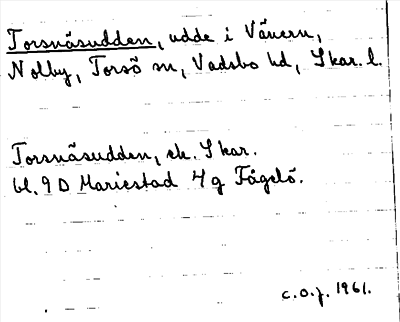 Torsnäsudden, udde i Vänern,
Nolby, Torsö sn, Vadsbo hd, Skar. l.
Torsnäsudden, ek. Skar.
bl. 9 D Mariestad 4 g Fågelö.
C.O.J. 1961.